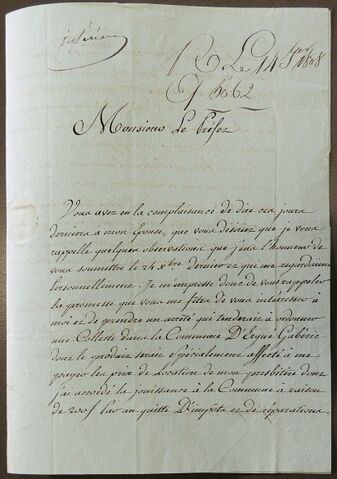 R Le 14 1808
Monsieur Le Préfet
Vous avez eu la complaisance de dire ces jours
derniers à mon Epouse, que vous desiriez que je vous
rappelle quelques observations que j'eus l'honneur de
vous soumettre le 24 Xbre dernier et qui me regardaient
personnellement. Je m'empresse donc de vous rappeler
la promesse que vous me fites de vous interesser à
moi et de prendre un arrêté qui tenderait à ordonner
une Collecte dans la Commune D'Ergué Gabéric
dont le produit serait spécialement affecté à me
payer le prix de Location de mon presbitère dont
j'ai accordé la jouissance à la Commune à raison
de 200f par an quitte D'impots et de réparations.